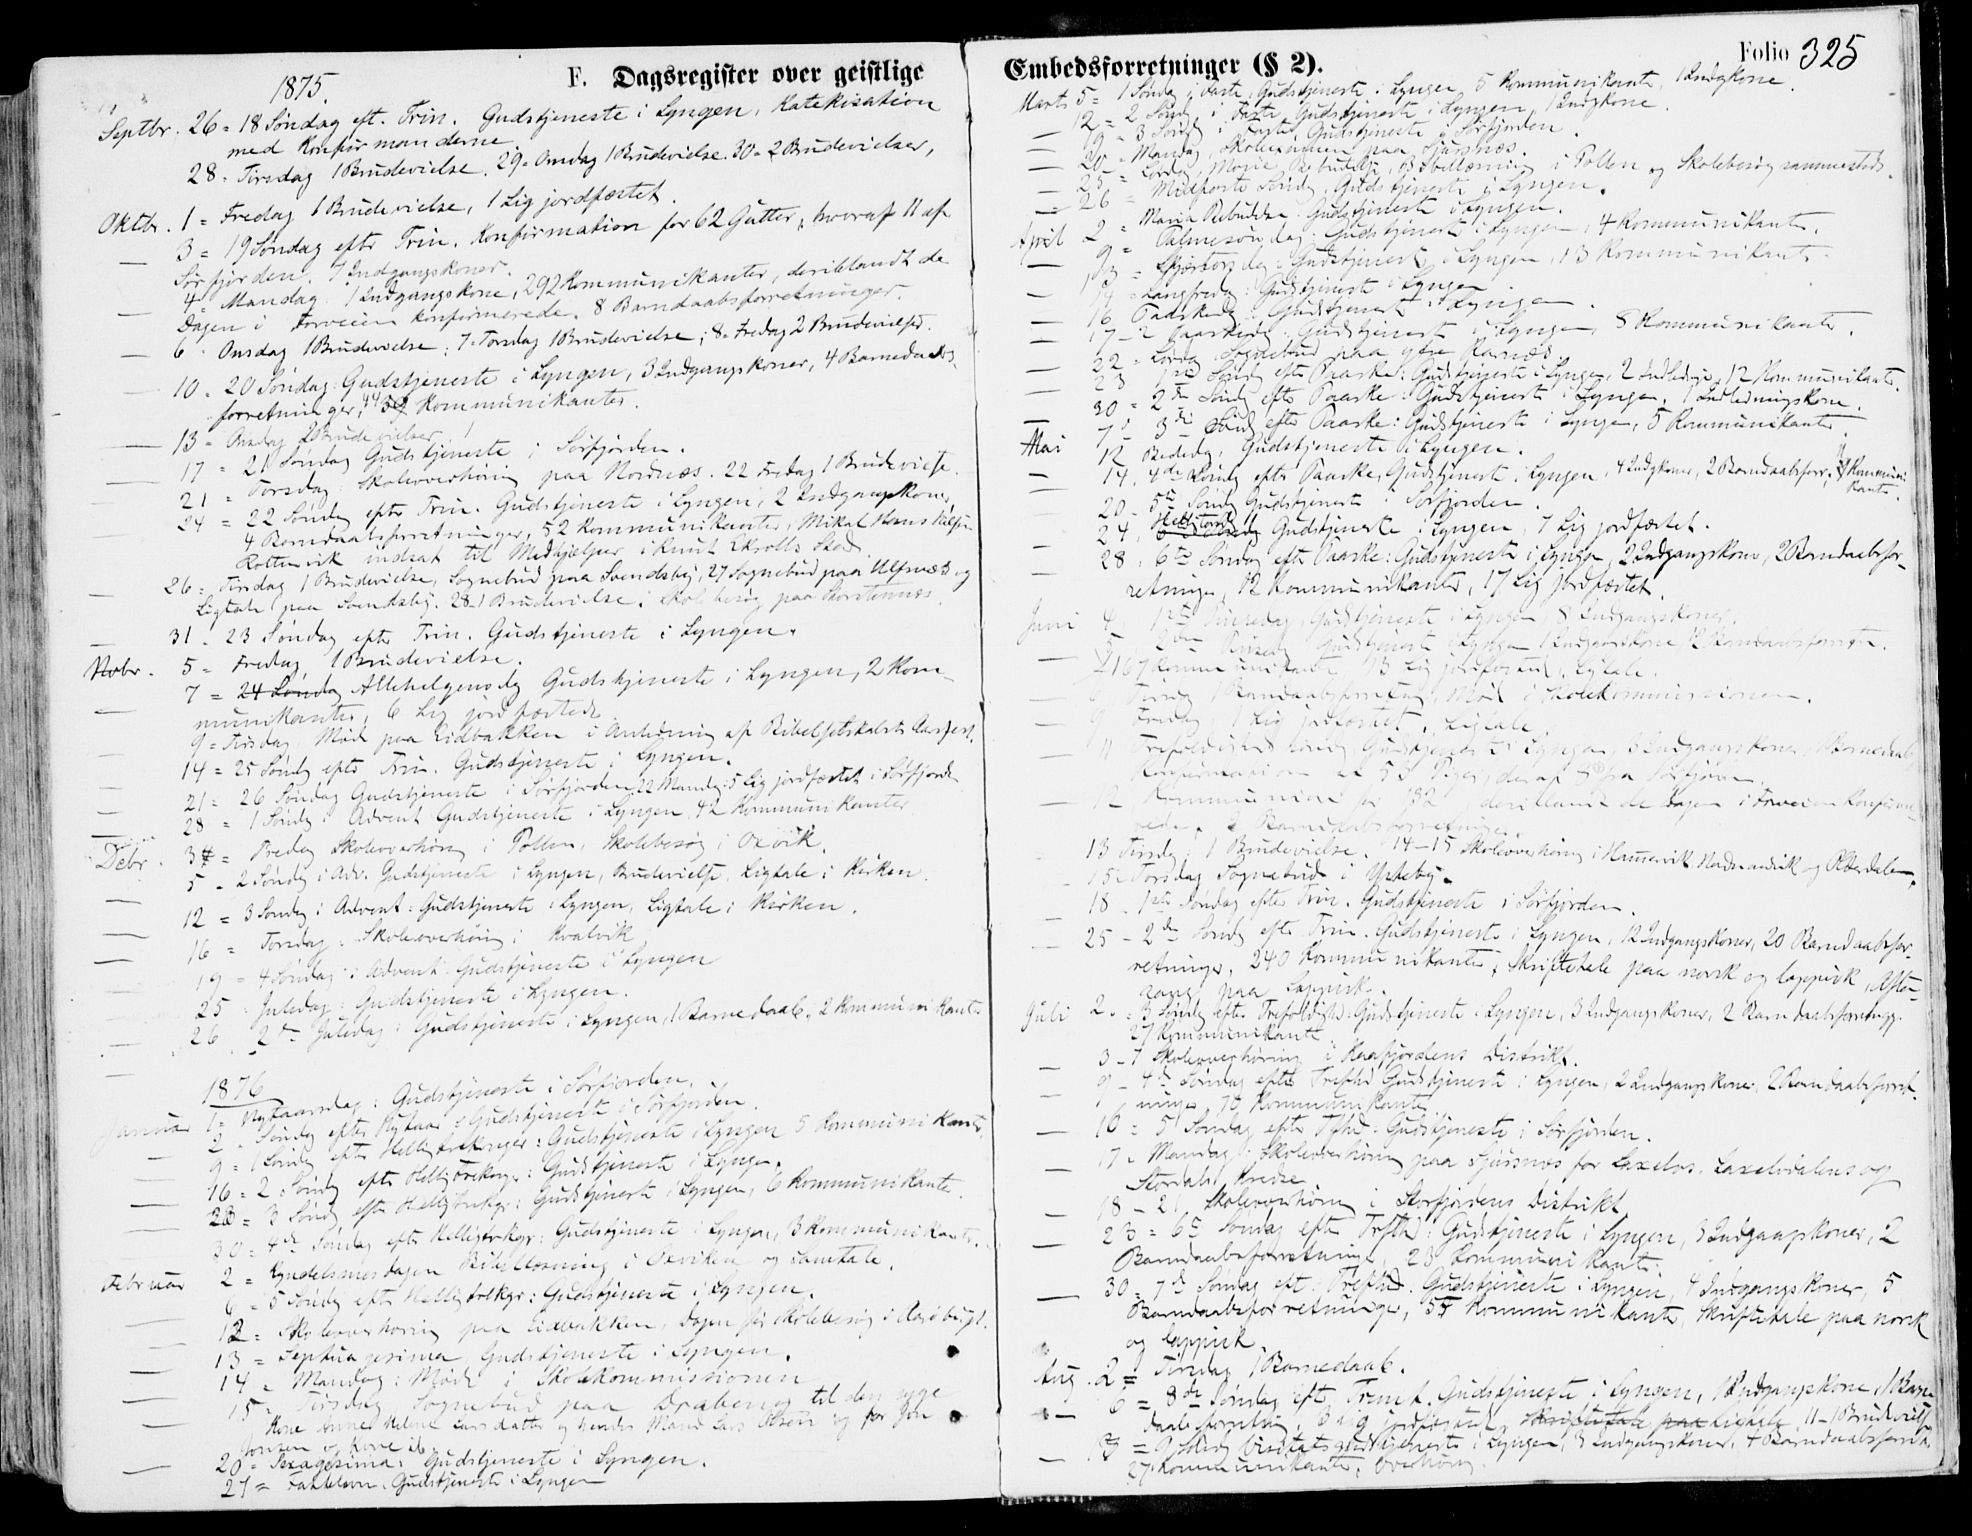 F. Dagsregister over geistlige
1875.
Septbr. 26 = 18 Søndag eft. Trin. Gudstjeneste i Lyngen, Katekisation
med Konfirmanderne
28 = Tirsdag 1 Brudevielse. 29 = Onsdag 1 Brudevielse. 30 = 2 Brudevielser,
Oktbr. 1 = Fredag 1 Brudevielse, 1 Lig jordfæstet.
— 3 = 19 Søndag efter Trin. Konfirmation for 62 Gutter, hvoraf 11 af
Sørfjorden. 7 Indgangskoner.
— 4 = Mandag 1 Indgangskone, 292 Kommunikanter, deriblandt de
Dagen i Forveien konfirmerede. 8 Barndaabsforretninger.
— 6 = Onsdag 1 Brudevielse; 7 = Torsdag 1 Brudevielse; 8 = Fredag 2 Brudevielser.
10 = 20 Søndag: Gudstjeneste i Lyngen, 3 Indgangskoner, 4 Barnedaabs-
forretninger, Kommunikanter.
— 13 = Onsdag 2 Brudevielser.
17 = 21 Søndag Gudstjeneste i Sørfjorden.
21 = Torsdag: Skoleoverhøring paa Nordnæs. 22 Fredag 1 Brudevielse.
24 = 22 Søndag efter Trin. Gudstjeneste i Lyngen, 2 Indgangskoner,
4 Barndaabsforretninger, 52 Kommunikanter, Mikal Hans
indsat til Medhjælper, i Knut Stad.
— 26 = Tirsdag 1 Brudevielse, Sognebud paa Svendsby, 27 Sognebud paa Ulfsnæs og
Ligtale paa Svendsby. 28 = 1 Brudevielse. Skolebesøg paa
— 31 = 23 Søndag efter Trin. Gudstjeneste i Lyngen.
Novbr. 5 = Fredag 1 Brudevielse.
— 7 = 24 Søndag Allehelgensdag Gudstjeneste i Lyngen, 2 Kom-
munikanter, 6 Lig jordfæstede
9 = Tirsdag, Møde paa Eidbakken i Anledning af Bibelselskabets Aarsfest.
14 = 25 Søndag efter Trin. Gudstjeneste i Lyngen.
— 21 = 26 Søndag Gudstjeneste i Sørfjorden, 22 Mandag: 5 Lig jordfæstet i Sørfjorden
— 28 = 1 Søndag i Advent Gudstjeneste i Lyngen, 42 Kommunikanter
Debr. 3 = Fredag Skoleoverhøring i Pollen, Skolebesøg i Oxvik.
5 = 2 Søndag i Adv. Gudstjeneste i Lyngen, Brudevielse, Ligtale i Kirken.
— 12 = 3 Søndag i Advent: Gudstjeneste i Lyngen, Ligtale i Kirken.
— 16 = Torsdag: Skoleoverhøring i Kvalvik
— 19 = 4 Søndag i Advent: Gudstjeneste i Lyngen
25 = Juledag: Gudstjeneste i Lyngen.
— 26 = 2den Juledag: Gudstjeneste i Lyngen, 1 Barnedaab, 2 Kommunikanter
1876
Januar 1 = Nytaarsdag: Gudstjeneste i Sørfjorden.
2 = Søndag efter Nytaar: Gudstjeneste i Sørfjorden.
— 9 = 1 Søndag efter Helligtrekonger: Gudstjeneste i Lyngen 5 Kommunikanter.
— 16 = 2 Søndag efter Helligtrekonger: Gudstjeneste i Lyngen.
— 23 = 3 Søndag efter Helligtrekgr: Gudstjeneste i Lyngen, 6 Kommunikanter.
— 30 = 4de Søndag efter Helligtrekgr: Gudstjeneste i Lyngen, 3 Kommunikanter.
Februar 2 = Kyndelsmesdagen Bibellæsning i Oxviken og Samtale.
6 = 5 Søndag efter Helligtrekgr: Gudstjeneste i Lyngen.
— 12 = Skoleoverhøring paa Eidbakken, Dagen før Skolebesøg i
— 13 = Septuagesima Gudstjeneste i Lyngen.
— 14 = Mandag: Møde i Skolekommissionen
— 15 = Tirsdag Sognebud paa til den syge
Kone Anne Helene Larsdatter og hendes Mand Lars Olsen og for Jon
Jonsen
20 = Sexagesima: Gudstjeneste i Lyngen.
— 27 = Fastelavn. Gudstjeneste i Lyngen
Embedsforretninger (§ 2).
Folio 325
Marts 5 = 1 Søndag i Faste, Gudstjeneste i Lyngen 5 Kommunikanter, 1 Indgkone.
— 12 = 2 Søndag i Faste Gudstjeneste i Lyngen, 1 Indgkone.
— 19 = 3 Søndag i Faste, Gudstjeneste i Sørfjorden.
— 20 = Mandag, Skoleexamen paa Sjursnæs.
— 25 = Lørdag, Mariæ Bebudelse, Bibellæsning i Pollen og Skolebesøg sammesteds.
— 26 = Midfaste Søndag, Gudstjeneste i Lyngen.
April 2 = Maria Bebudelse: Gudstjeneste i Lyngen.
— 9 = Palmesøndag: Gudstjeneste i Lyngen, 4 Kommunikanter.
— 13 = Skjærtorsdag: Gudstjeneste i Lyngen, 13 Kommunikanter.
— 14 = Langfredag: Gudstjeneste i Lyngen
— 16 Paaskedag: Gudstjeneste i Lyngen.
— 17 = 2 Paaskedag: Gudstjeneste i Lyngen, 8 Kommunikanter.
— 22 = Lørdag Sognebud paa ytre Karnæs.
— 23 1ste Søndag efter Paaske: Gudstjeneste i Lyngen, 2 12 Kommunikanter.
— 30 = 2den Søndag efter Paaske: Gudstjeneste i Lyngen, 1 Indledningskone.
Mai 7 = 3die Søndag efter Paaske: Gudstjeneste i Lyngen, 5 Kommunikanter
12 Bededag, Gudstjeneste i Lyngen.
— 14. 4de Søndag efter Paaske, Gudstjeneste i Lyngen, 4 Indgkoner, 2 Barndaabsforr., Kommuni-
kanter.
— 20 - 5te Søndag Gudstjeneste i Sørfjorden.
— 24. Gudstjeneste i Lyngen, 1 Lig jordfæstet.
— 28. 6te Søndag efter Paaske: Gudstjeneste i Lyngen, 2 Indgangskoner, 2 Barndaabsfor-
retninger, 12 Kommunikanter, 17 Lig jordfæstet.
Juni 4. 1ste Pinsedag, Gudstjeneste i Lyngen, 8 Indgangskoner,
5. 2den Pinsedag Gudstjeneste i Lyngen 1 Indgangskone 12 Barndaabsforretn.
167 Kommunikanter, 13 Lig jordfæstet, Ligtale.
— 6 Tirsdag 1 Barndaabsforretning, Møde i Skolekommissionen.
— 9 Fredag 1 Lig jordfæstet, Ligtale
— 11 Trefoldighed Søndag, Gudstjeneste i Lyngen, 3 Indgangskoner, Barnedaab,
Konfirmation af 53 Piger, deraf fra Sørfjorden.
— 12 Kommunion for 182 deriblandt de Dagen i Forveien Konfirme-
rede, 2 Barndaabsforretninger.
- 13 Tirsdag, 1 Brudevielse. 14-15 Skoleoverhøring i og Olderdalen.
- 15 Torsdag Sognebud i
- 18. 1ste Søndag efter Trin. Gudstjeneste i Sørfjorden.
— 25 - 2den Søndag efter Trin. Gudstjeneste i Lyngen, 12 Indgangskoner, 20 Barndaabsfor-
retninger, 240 Kommunikanter, Skriftetale paa norsk og lappisk, Aften-
sang paa Lappisk.
Juli 2. = 3 Søndag efter Trefoldighd: Gudstjeneste i Lyngen, 3 Indgangskoner, 2 Barndaabsforretngr.
27 Kommunikanter
— 3 - 7 Skoleoverhøring i Kaafjordens Distrikt.
— 9 - 4de Søndag efter Trefhd Gudstjeneste i Lyngen, 2 Indgangskoner, 2 Barndaabsforret-
ninger, 70 Kommunikanter
— 16 = 5 Søndag efter Tfhd: Gudstjeneste i Sørfjorden.
— 17 = Mandag: Skoleoverhøring paa Sjursnæs for Laxelvs, Laxelvdalens og
Stordals Kredse
— 18 - 21 Skoleoverhøring i Storfjordens Distrikt
— 23 = 6te Søndag efter Trfhd: Gudstjeneste i Lyngen, 3 Indgangskoner, 2
Barndaabsforretninger, 23 Kommunikanter.
— 30 = 7de Søndag eft. Trefhd. Gudstjeneste i Lyngen, 4 Indgangskoner, 5
Barndaabsforretninger, Kommunikanter, Skriftetale paa norsk
og lappisk
Aug. 2 = Tirsdag 1 Barnedaab.
— 6 = 8de Søndag eft. Trinit. Gudstjeneste i Lyngen, 1 Indgangskone, 1 Barne-
daabsforretning, 6 Lig jordfæstede, Skriftetale paa Ligtale 11 - 1 Brudevielse
— = 9 Søndag Visitatsgudstjeneste i Lyngen, 3 Indgangskoner, 4 Barndaabsforretn.
27 Kommunikanter, Overhøring.